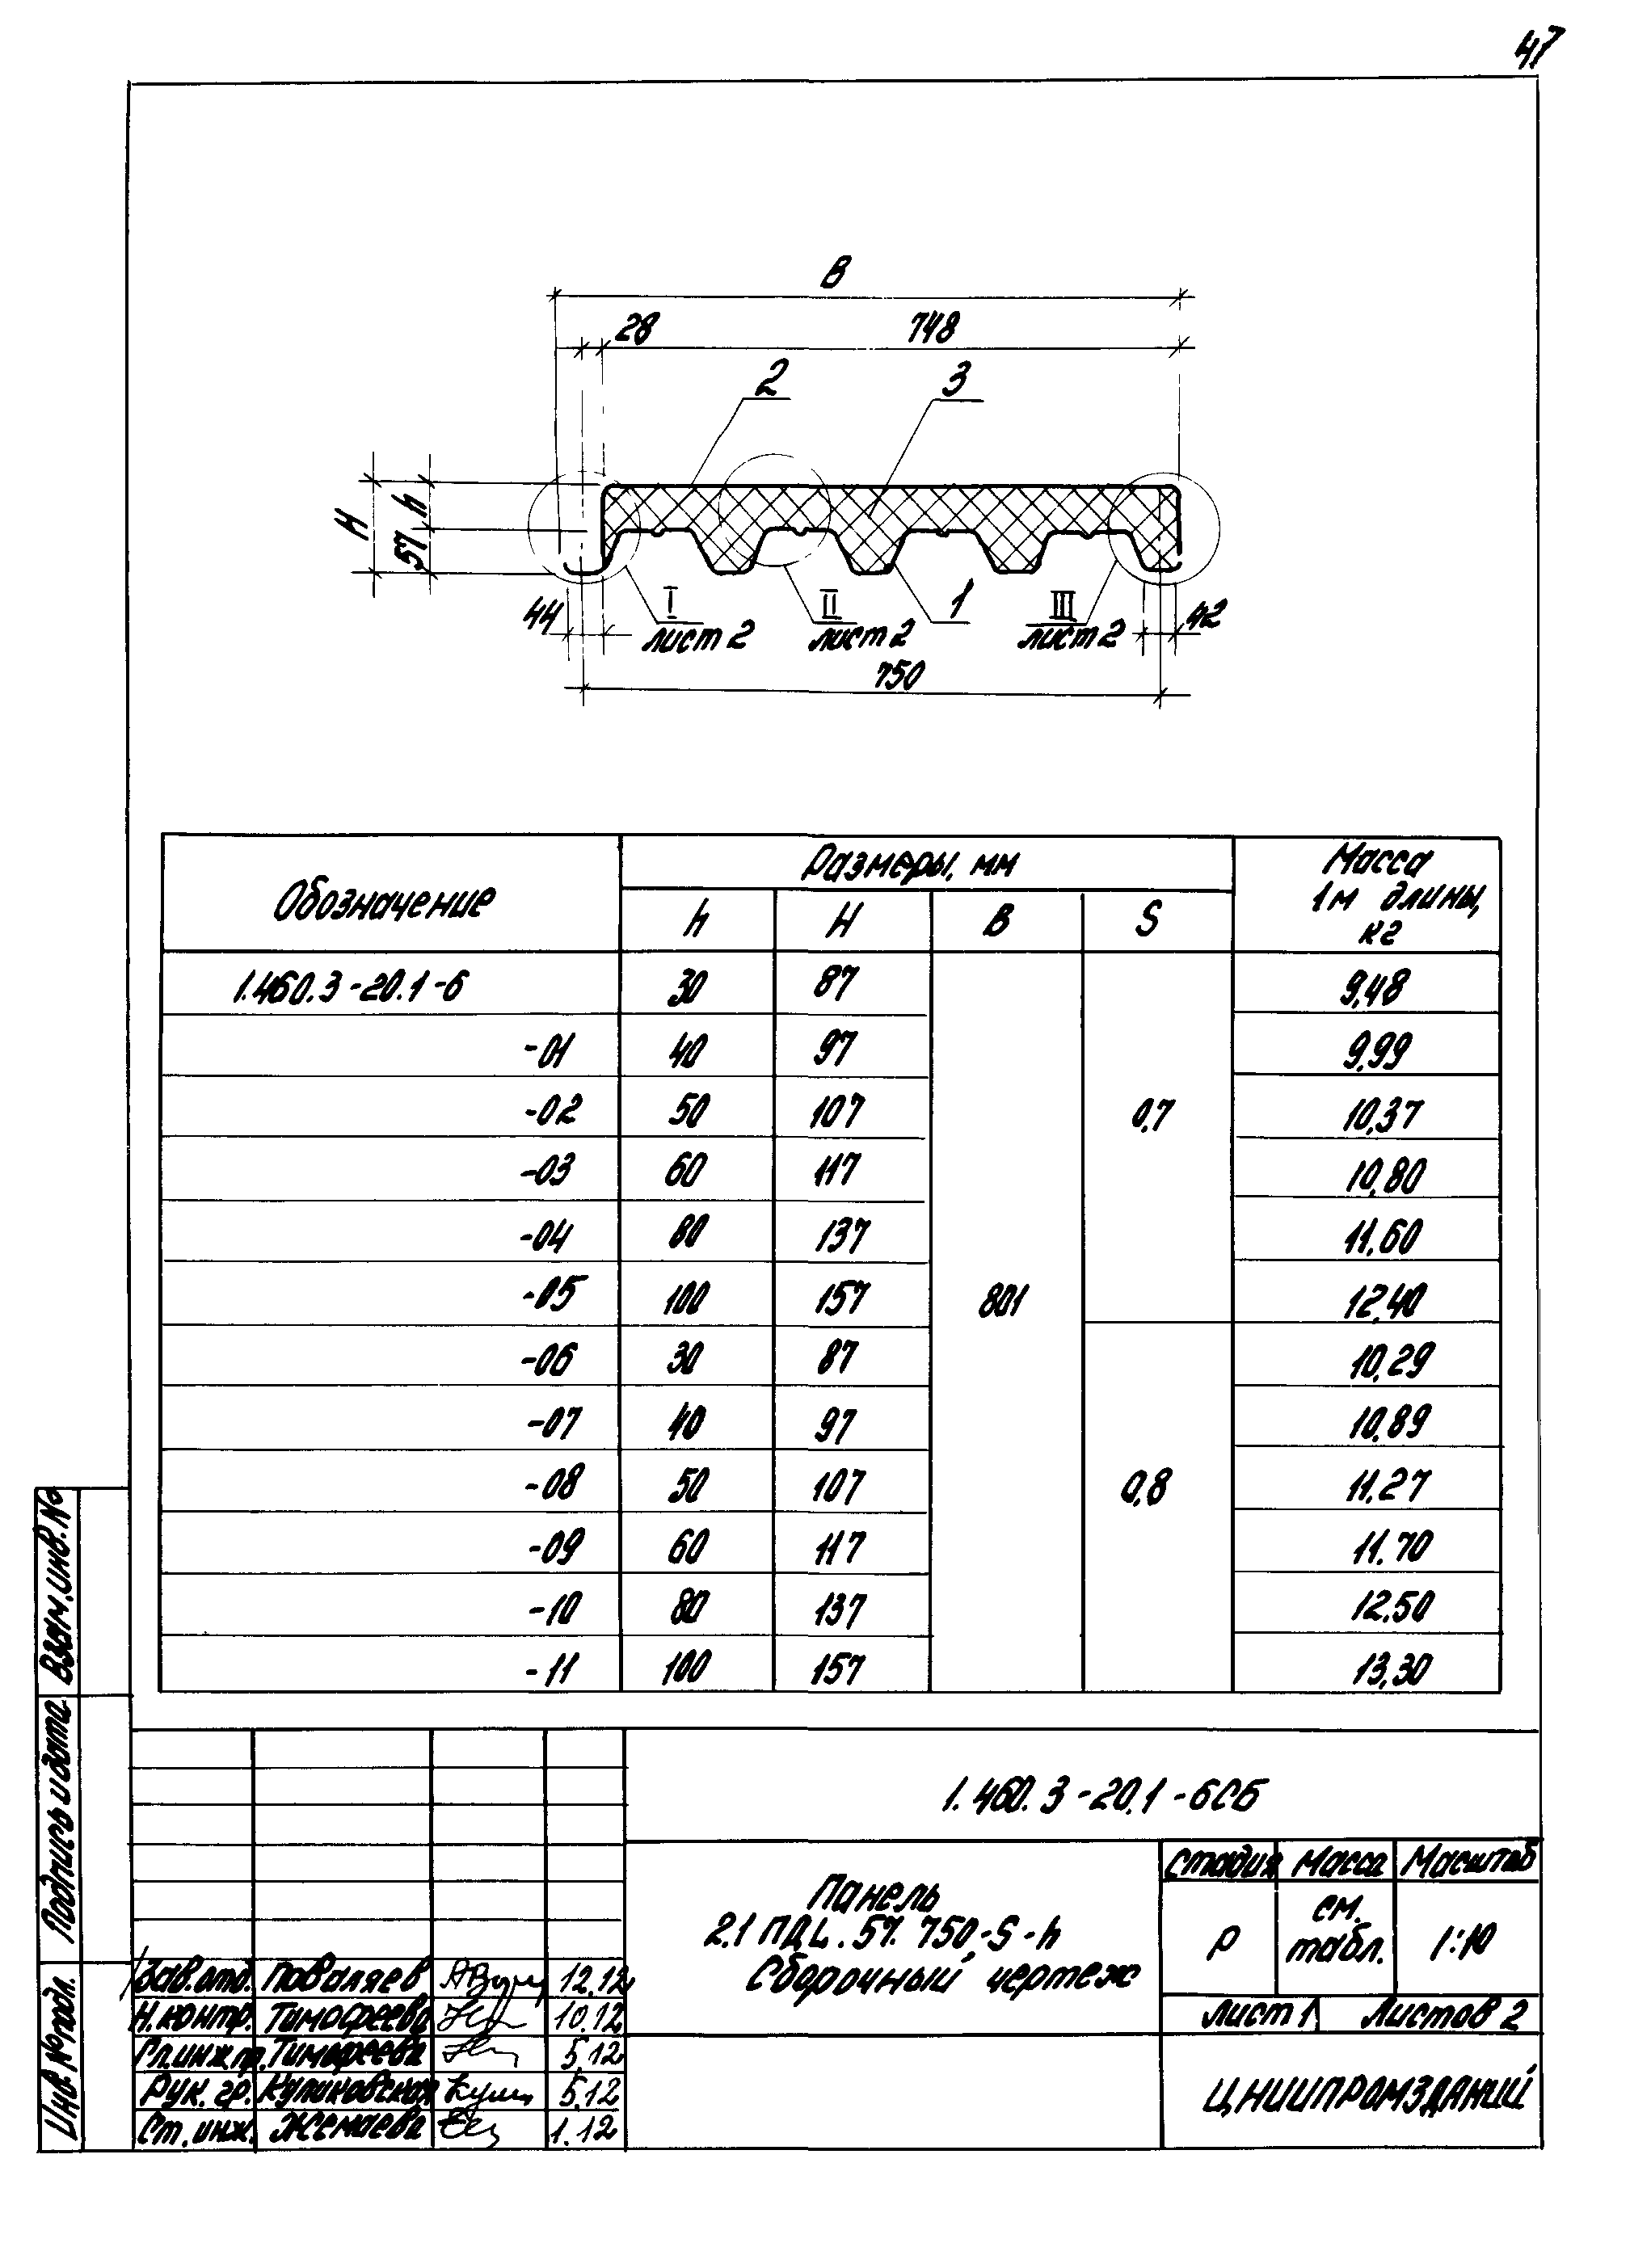 47
B
28 748
2 3
H h 57
44 I II 1 III 42
лист 2 лист 2 лист 2
750
Обозначение Размеры, мм Масса 1м длины, кг
h H B S
1.460.3-20.1-6 30 87 801 0,7 9,48
-01 40 97 9,99
-02 50 107 10,37
-03 60 117 10,80
-04 80 137 11,60
-05 100 157 12,40
-06 30 87 0,8 10,29
-07 40 97 10,89
-08 50 107 11,27
-09 60 117 11.70
-10 80 137 12.50
-11 100 157 13,30
Взам.инв.№
Подпись и дата
Инв.№ подл.
1.460.3-20.1-6СБ
Панель
2.1 ПДL.57.750-S-h
Сборочный чертеж
Стадия Масса Масштаб
Р см. табл. 1:10
Лист 1 Листов 2
ЦНИИПРОМЗДАНИЙ
Зав.отд. Поваляев 12.12
Н.контр. Тимофеева 10.12
Гл.инж.пр. Тимофеева 5.12
Рук.гр. Кулиновская 5.12
Ст.инж. Жемаева 1.12